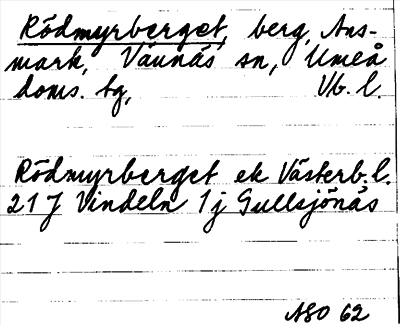 Rödmyrberget, berg, Ans-
mark, Vännäs sn, Umeå
doms. tg, Vb. l.
Rödmyrberget ek Västerb. l.
21 J Vindeln 1 j Gullsjönäs
ASO 62